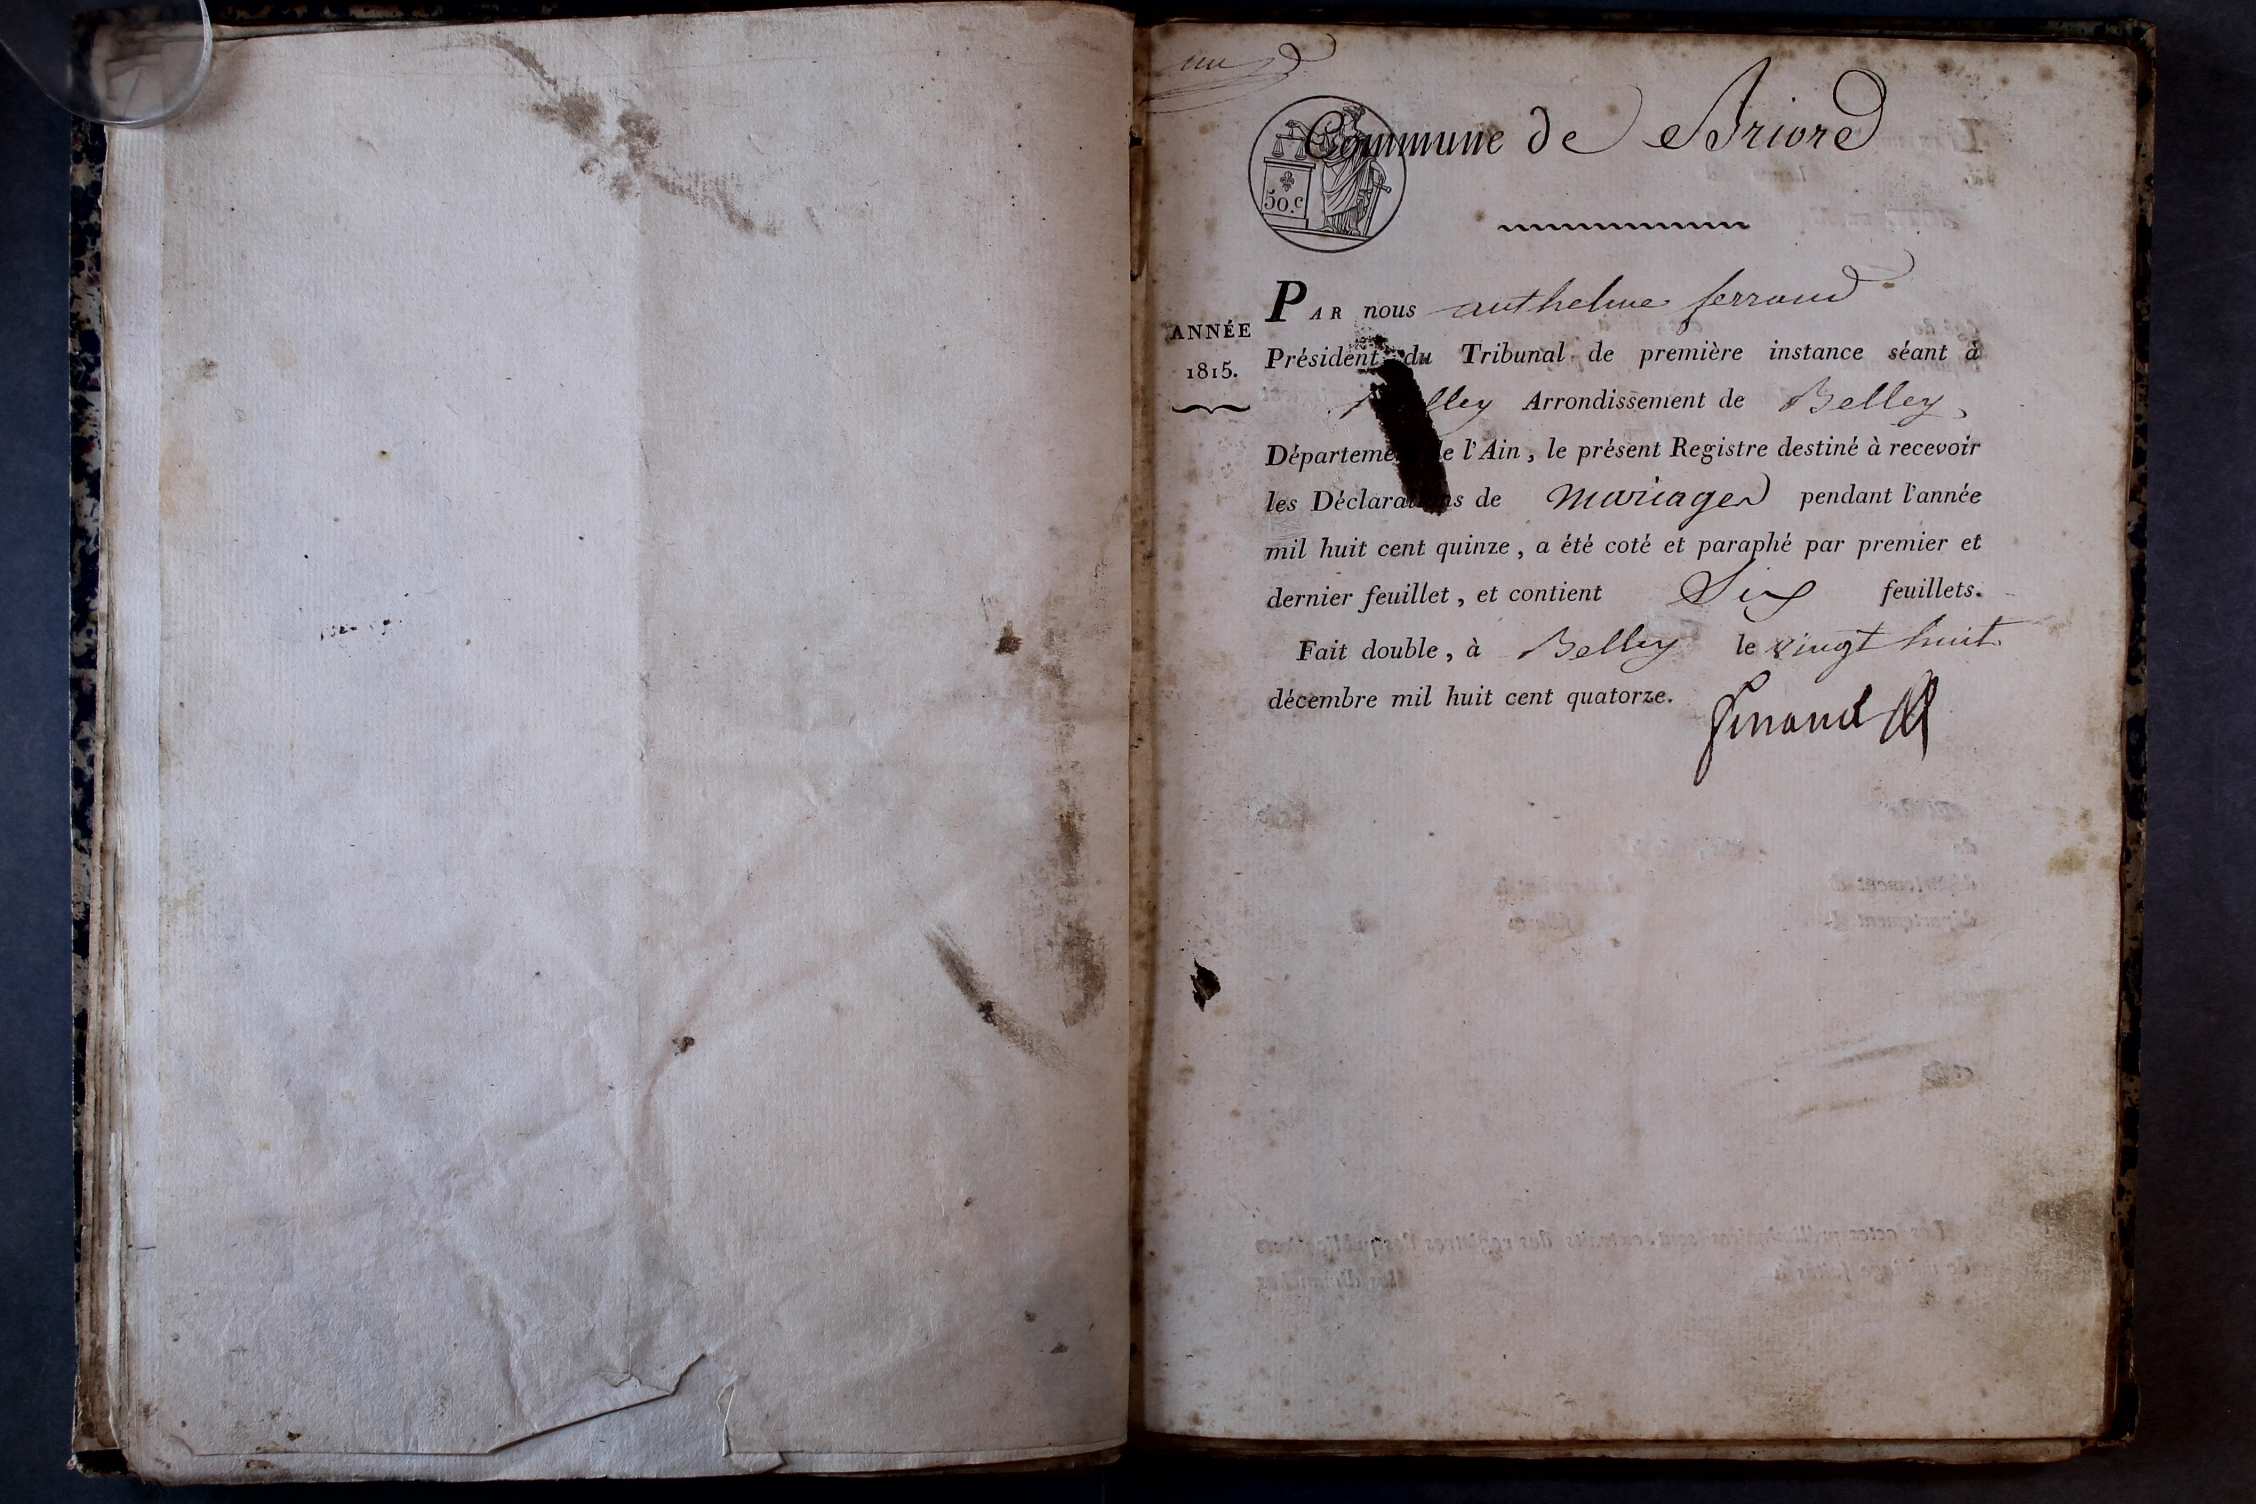 un
Commune de Briord
50.c
ANNÉE
1815.
PAR nous anthelme ferrand
Président du Tribunal de première instance séant à
Belley Arrondissement de Belley,
Département de l'Ain, le présent Registre destiné à recevoir
les Déclarations de Mariages pendant l'année
mil huit cent quinze, a été coté et paraphé par premier et
dernier feuillet, et contient Six feuillets.
Fait double, à Belley le vingt huit
décembre mil huit cent quatorze.
ferrand